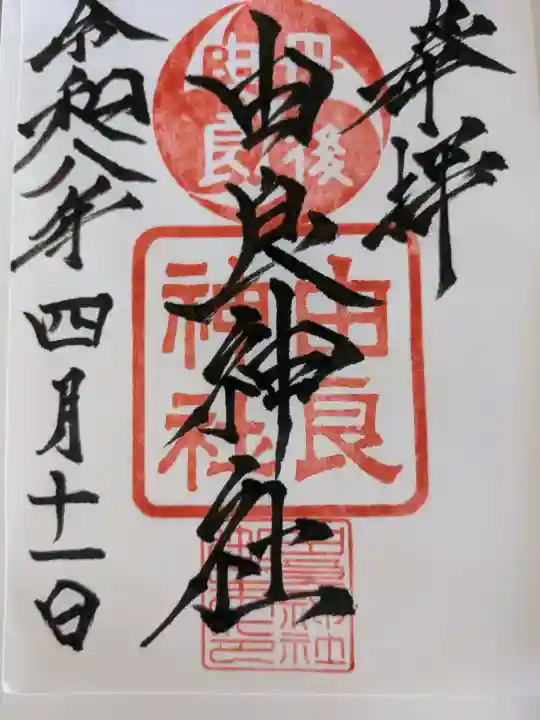 奉拝
丹後
由良
由良神社
由良
神社
令和八年四月十一日